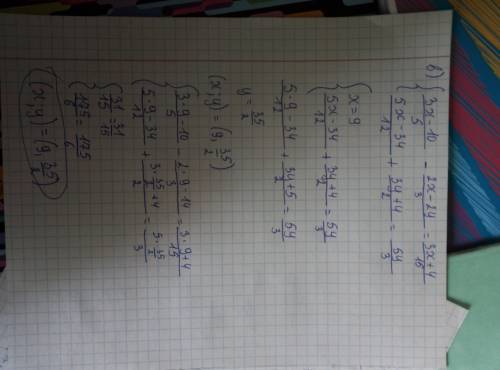 в) { (3x-10)/5 - (2x-24)/3 = (3x+4)/15
{ (5x-34)/12 + (3y+4)/2 = 5y/3
{ x=9
{ (5x-34)/12 + (3y+4)/2 = 5y/3
(5·9-34)/12 + (3y+5)/2 = 5y/3
y = 35/2
(x;y) = (9, 35/2)
{ (3·9-10)/5 - (2·9-14)/3 = (3·9+4)/15
{ (5·9-34)/12 + (3·35/2+4)/2 = (5·35/2)/3
{ 31/15 = 31/15
{ 175/6 = 175/6
(x;y) = (9, 35/2)